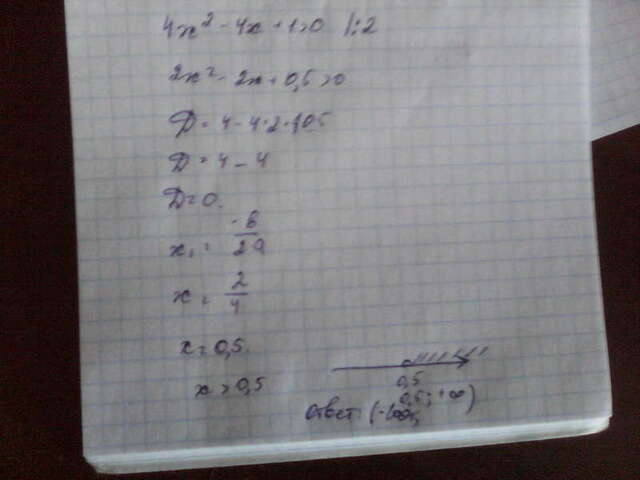 4x² - 4x + 1 > 0 |:2
2x² - 2x + 0,5 > 0
D = 4 - 4·2·0,5
D = 4 - 4
D = 0.
x₁ = -b/2a
x = 2/4
x = 0,5.
x > 0,5
0,5
Ответ: (0,5; +∞)